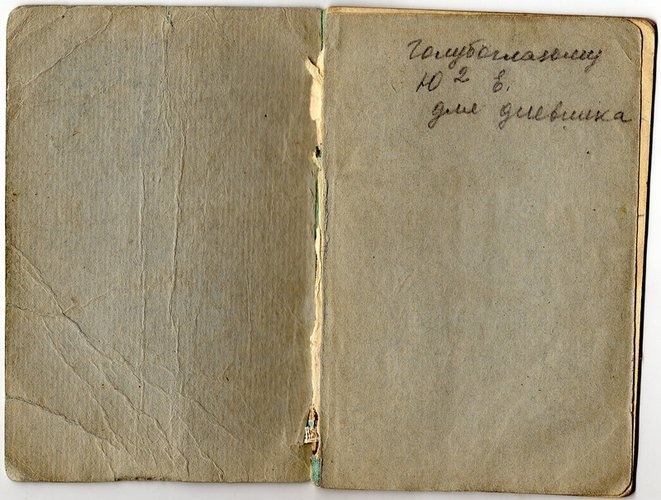 Голубоглазому
Ю 2 Е.
для дневника